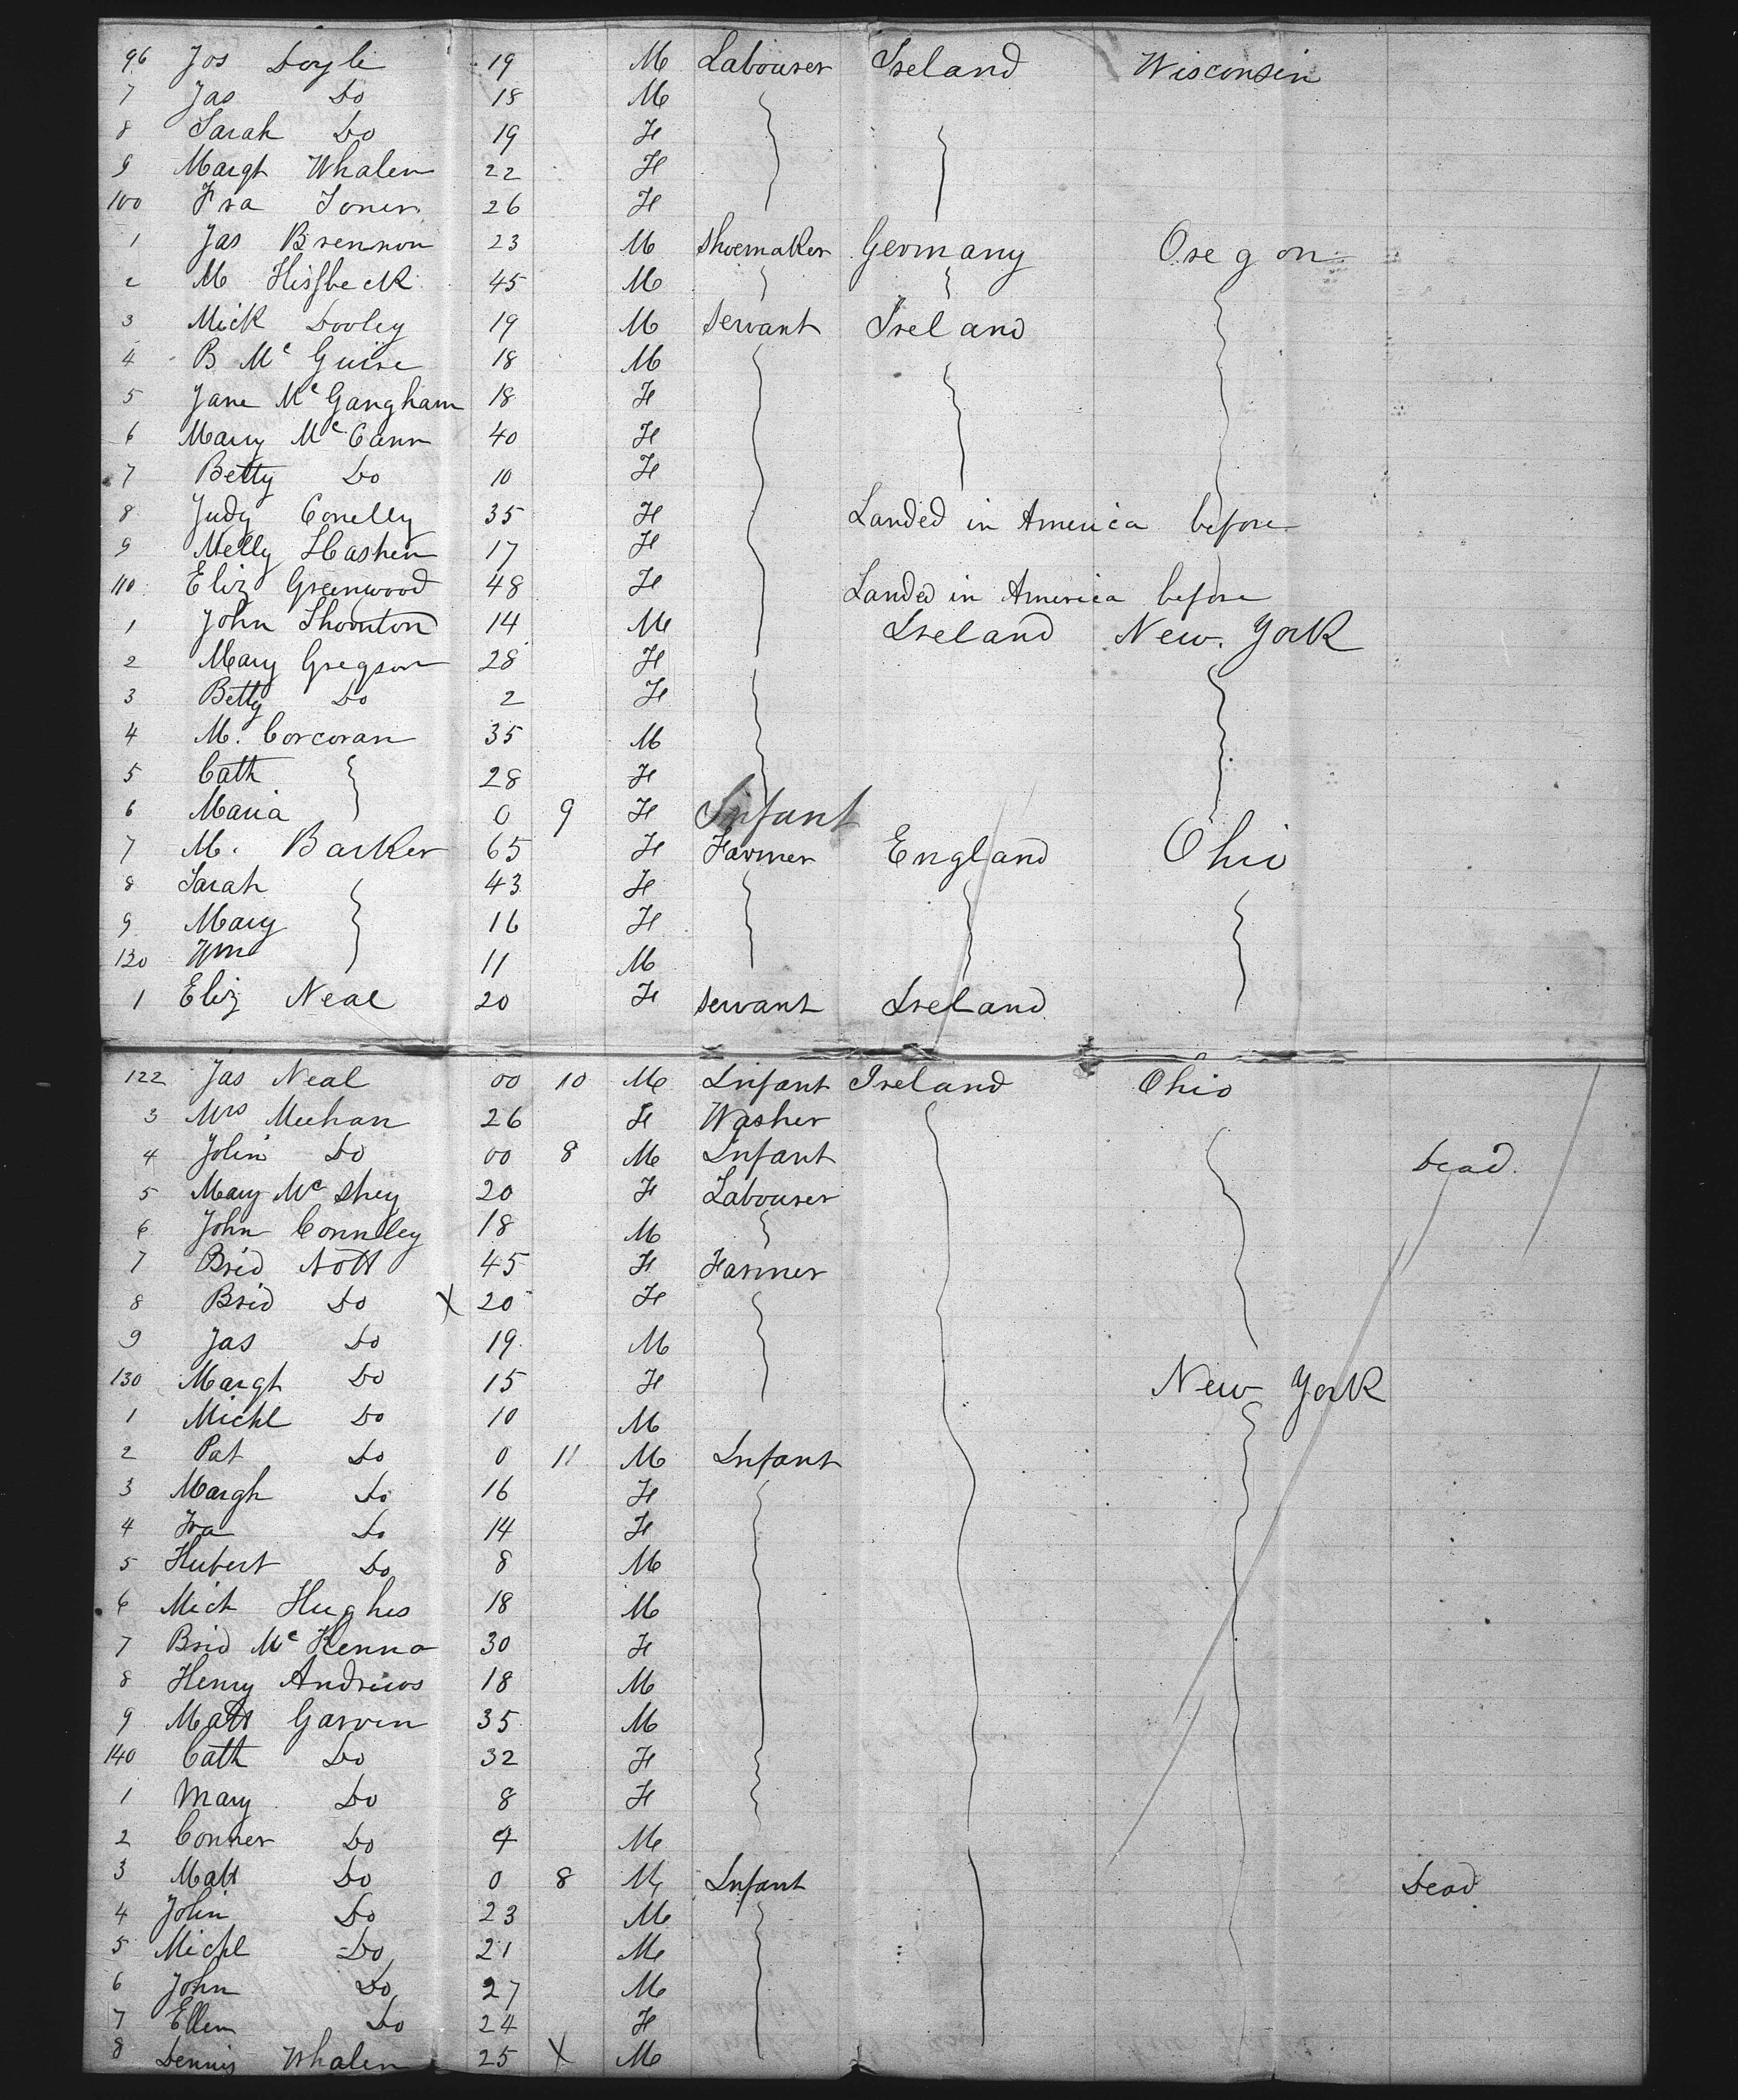 96 Jos Doyle 19 M Labourer Ireland Wisconsin
7 Jas Do 18 M
8 Sarah Do 19 F
9 Margt Whalen 22 F
100 Fra Joner 26 F
1 Jas Brennon 23 M Shoemaker Germany Oregon
2 M Hisfbeck 45 M
3 Mick Dooley 19 M Servant Ireland
4 B McGuire 18 M
5 Jane McGangham 18 F
6 Mary McCann 40 F
7 Betty Do 10 F
8 Judy Conelly 35 F Landed in America before
9 Melly 17 F
110 Eliz Greenwood 48 F Landed in America before
1 John Thornton 14 M Ireland New York
2 Mary Gregson 28 F
3 Betty Do 2 F
4 M. Corcoran 35 M
5 Cath 28 F
6 Maria 0 9 F Infant
7 M. Barker 65 F Farmer England Ohio
8 Sarah 43 F
9 Mary 16 F
120 Wm 11 M
1 Eliz Neal 20 F Servant Ireland
122 Jas Neal 00 10 M Infant Ireland Ohio
3 Mrs Meehan 26 F Washer
4 John Do 00 8 M Infant Dead.
5 Mary McShey 20 F Labourer
6 John Connlley 18 M
7 Brid Nott 45 F Farmer
8 Brid Do X 20 F
9 Jas Do 19 M
130 Margt Do 15 F New York
1 Michl Do 10 M
2 Pat Do 0 11 M Infant
3 Margh Do 16 F
4 Fra Do 14 F
5 Hubert Do 8 M
6 Mich Hughes 18 M
7 Brid McKenna 30 F
8 Henry Andrews 18 M
9 Matt Garven 35 M
140 Cath Do 32 F
1 Mary Do 8 F
2 Conner Do 4 M
3 Matt Do 0 8 M Infant Dead
4 John Do 23 M
5 Michl Do 21 M
6 John Do 27 M
7 Ellen Do 24 F
8 Dennis Whalen 25 X M